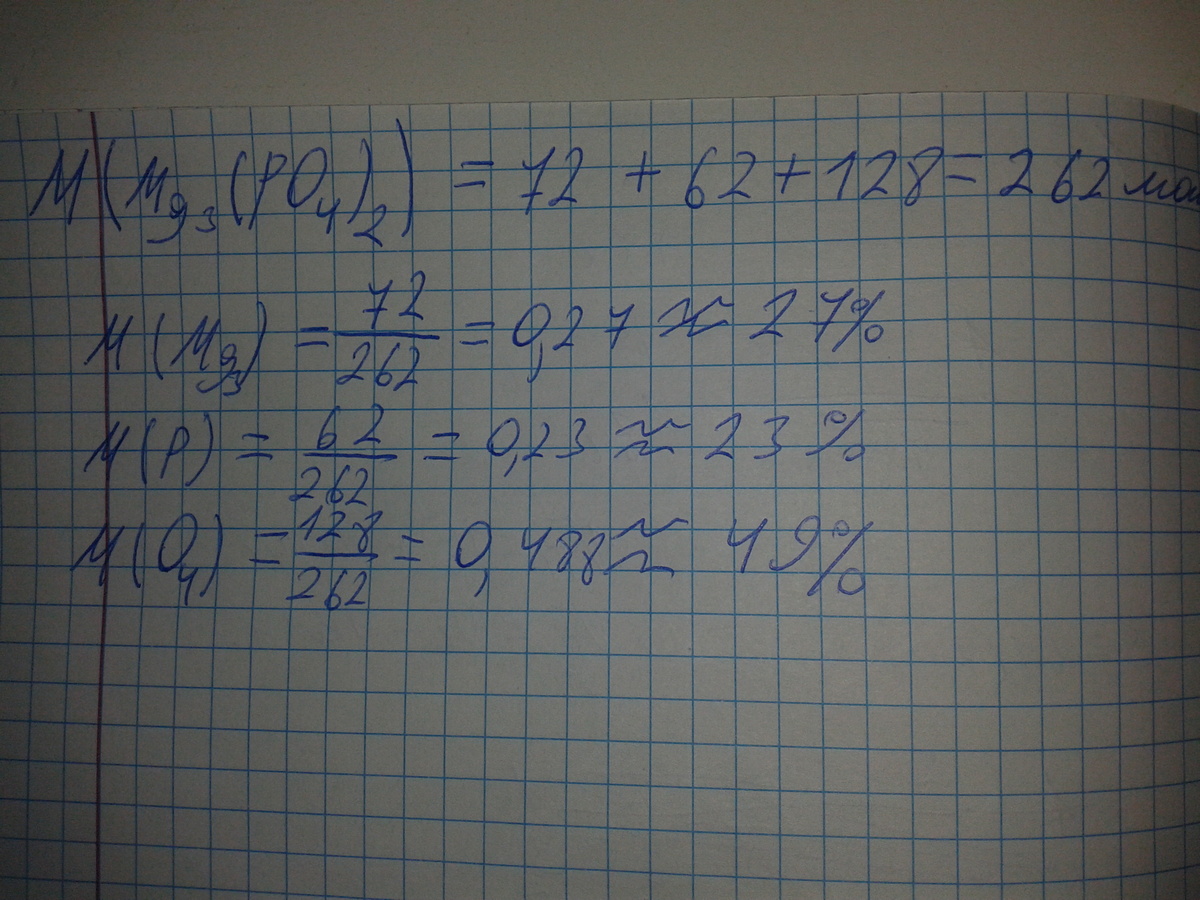 M(Mg₃(PO₄)₂) = 72 + 62 + 128 = 262 мол
M(Mg₃) = 72/262 = 0,27 ≈ 27%
M(P) = 62/262 = 0,23 ≈ 23%
M(O₄) = 128/262 = 0,488 ≈ 49%